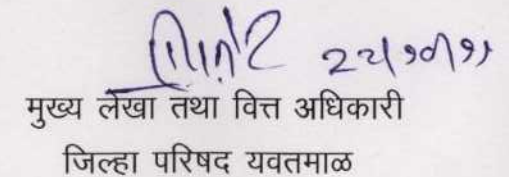 मुख्य लेखा तथा वित्त अधिकारी
जिल्हा परिषद यवतमाळ